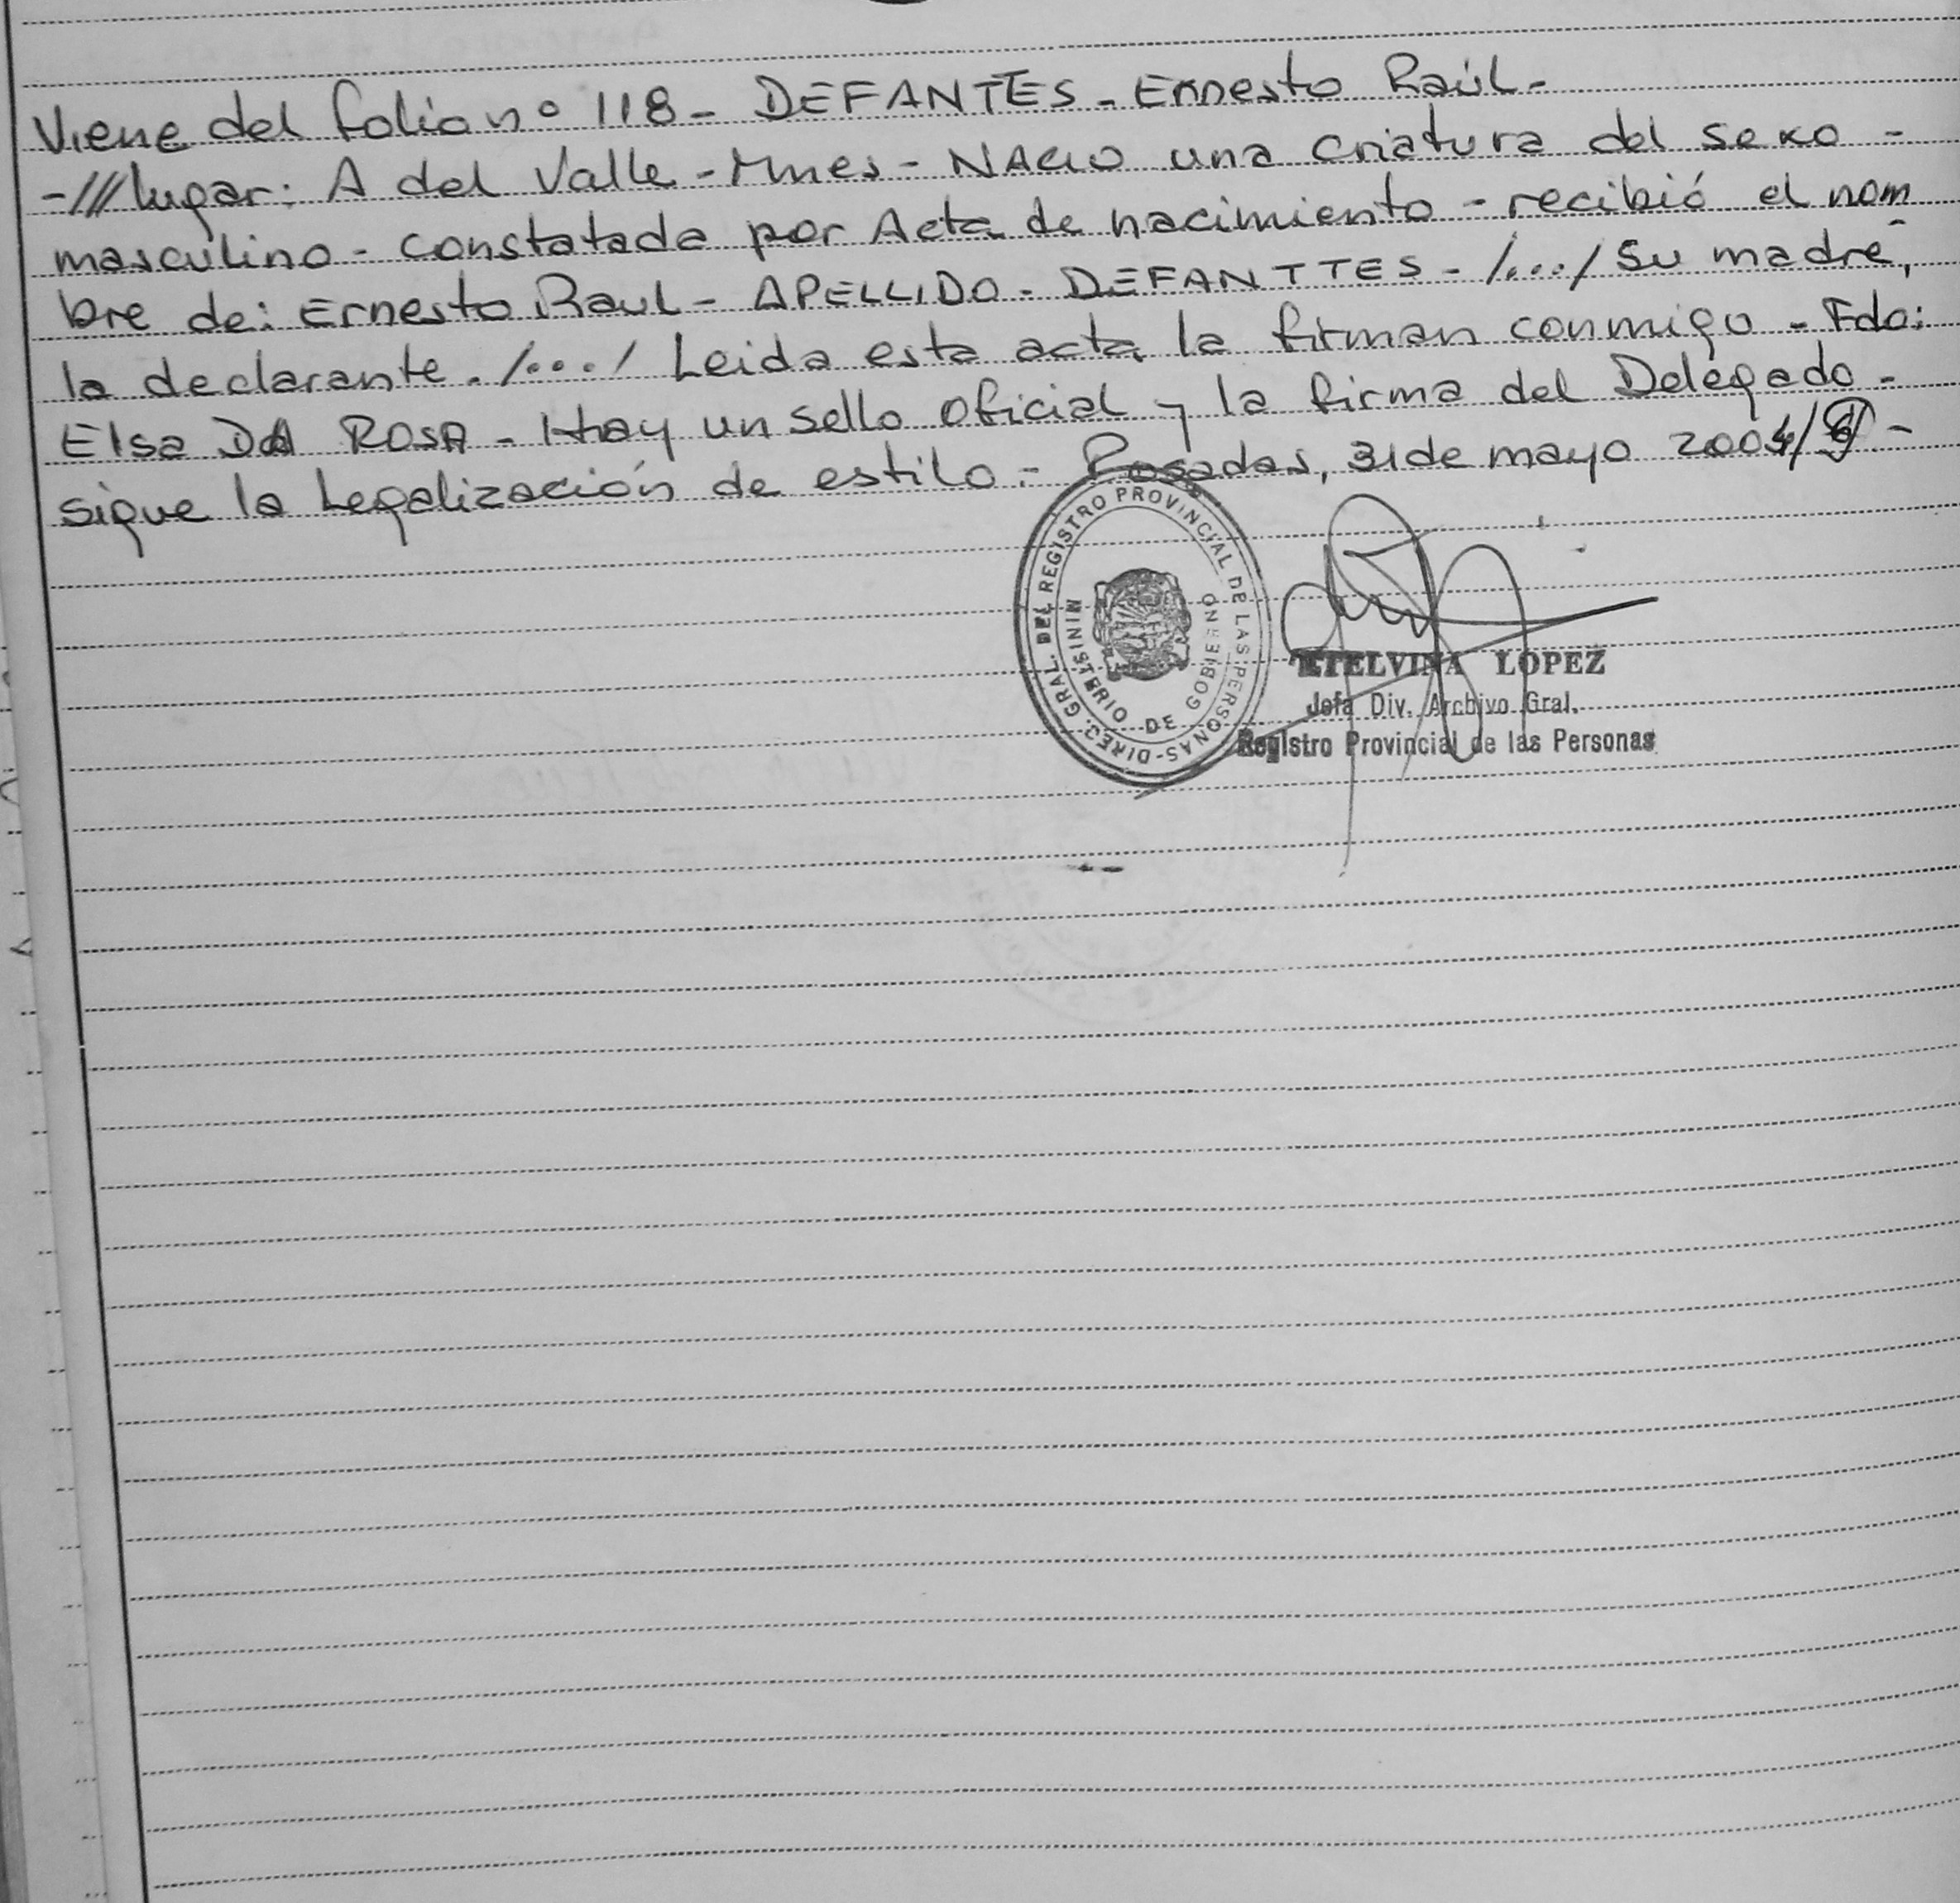 Viene del folio nº 118 - DEFANTES - Ernesto Raúl -
-/// lugar: A del Valle - Mnes - NACIO una criatura del sexo -
masculino - constatada por Acta de nacimiento - recibió el nom
bre de: Ernesto Raul - APELLIDO - DEFANTTES - /.../ Su madre,
la declarante. /.../ Leida esta acta la firman conmigo - Fdo:
Elsa DA ROSA - Hay un sello oficial y la firma del Delegado -
sigue la Legalización de estilo - Posadas, 31 de mayo
DIREC. GRAL. DEL REGISTRO PROVINCIAL DE LAS PERSONAS-
MINISTERIO DE GOBIERNO
ETELVINA LOPEZ
Jefa Div. Archivo Gral.
Registro Provincial de las Personas